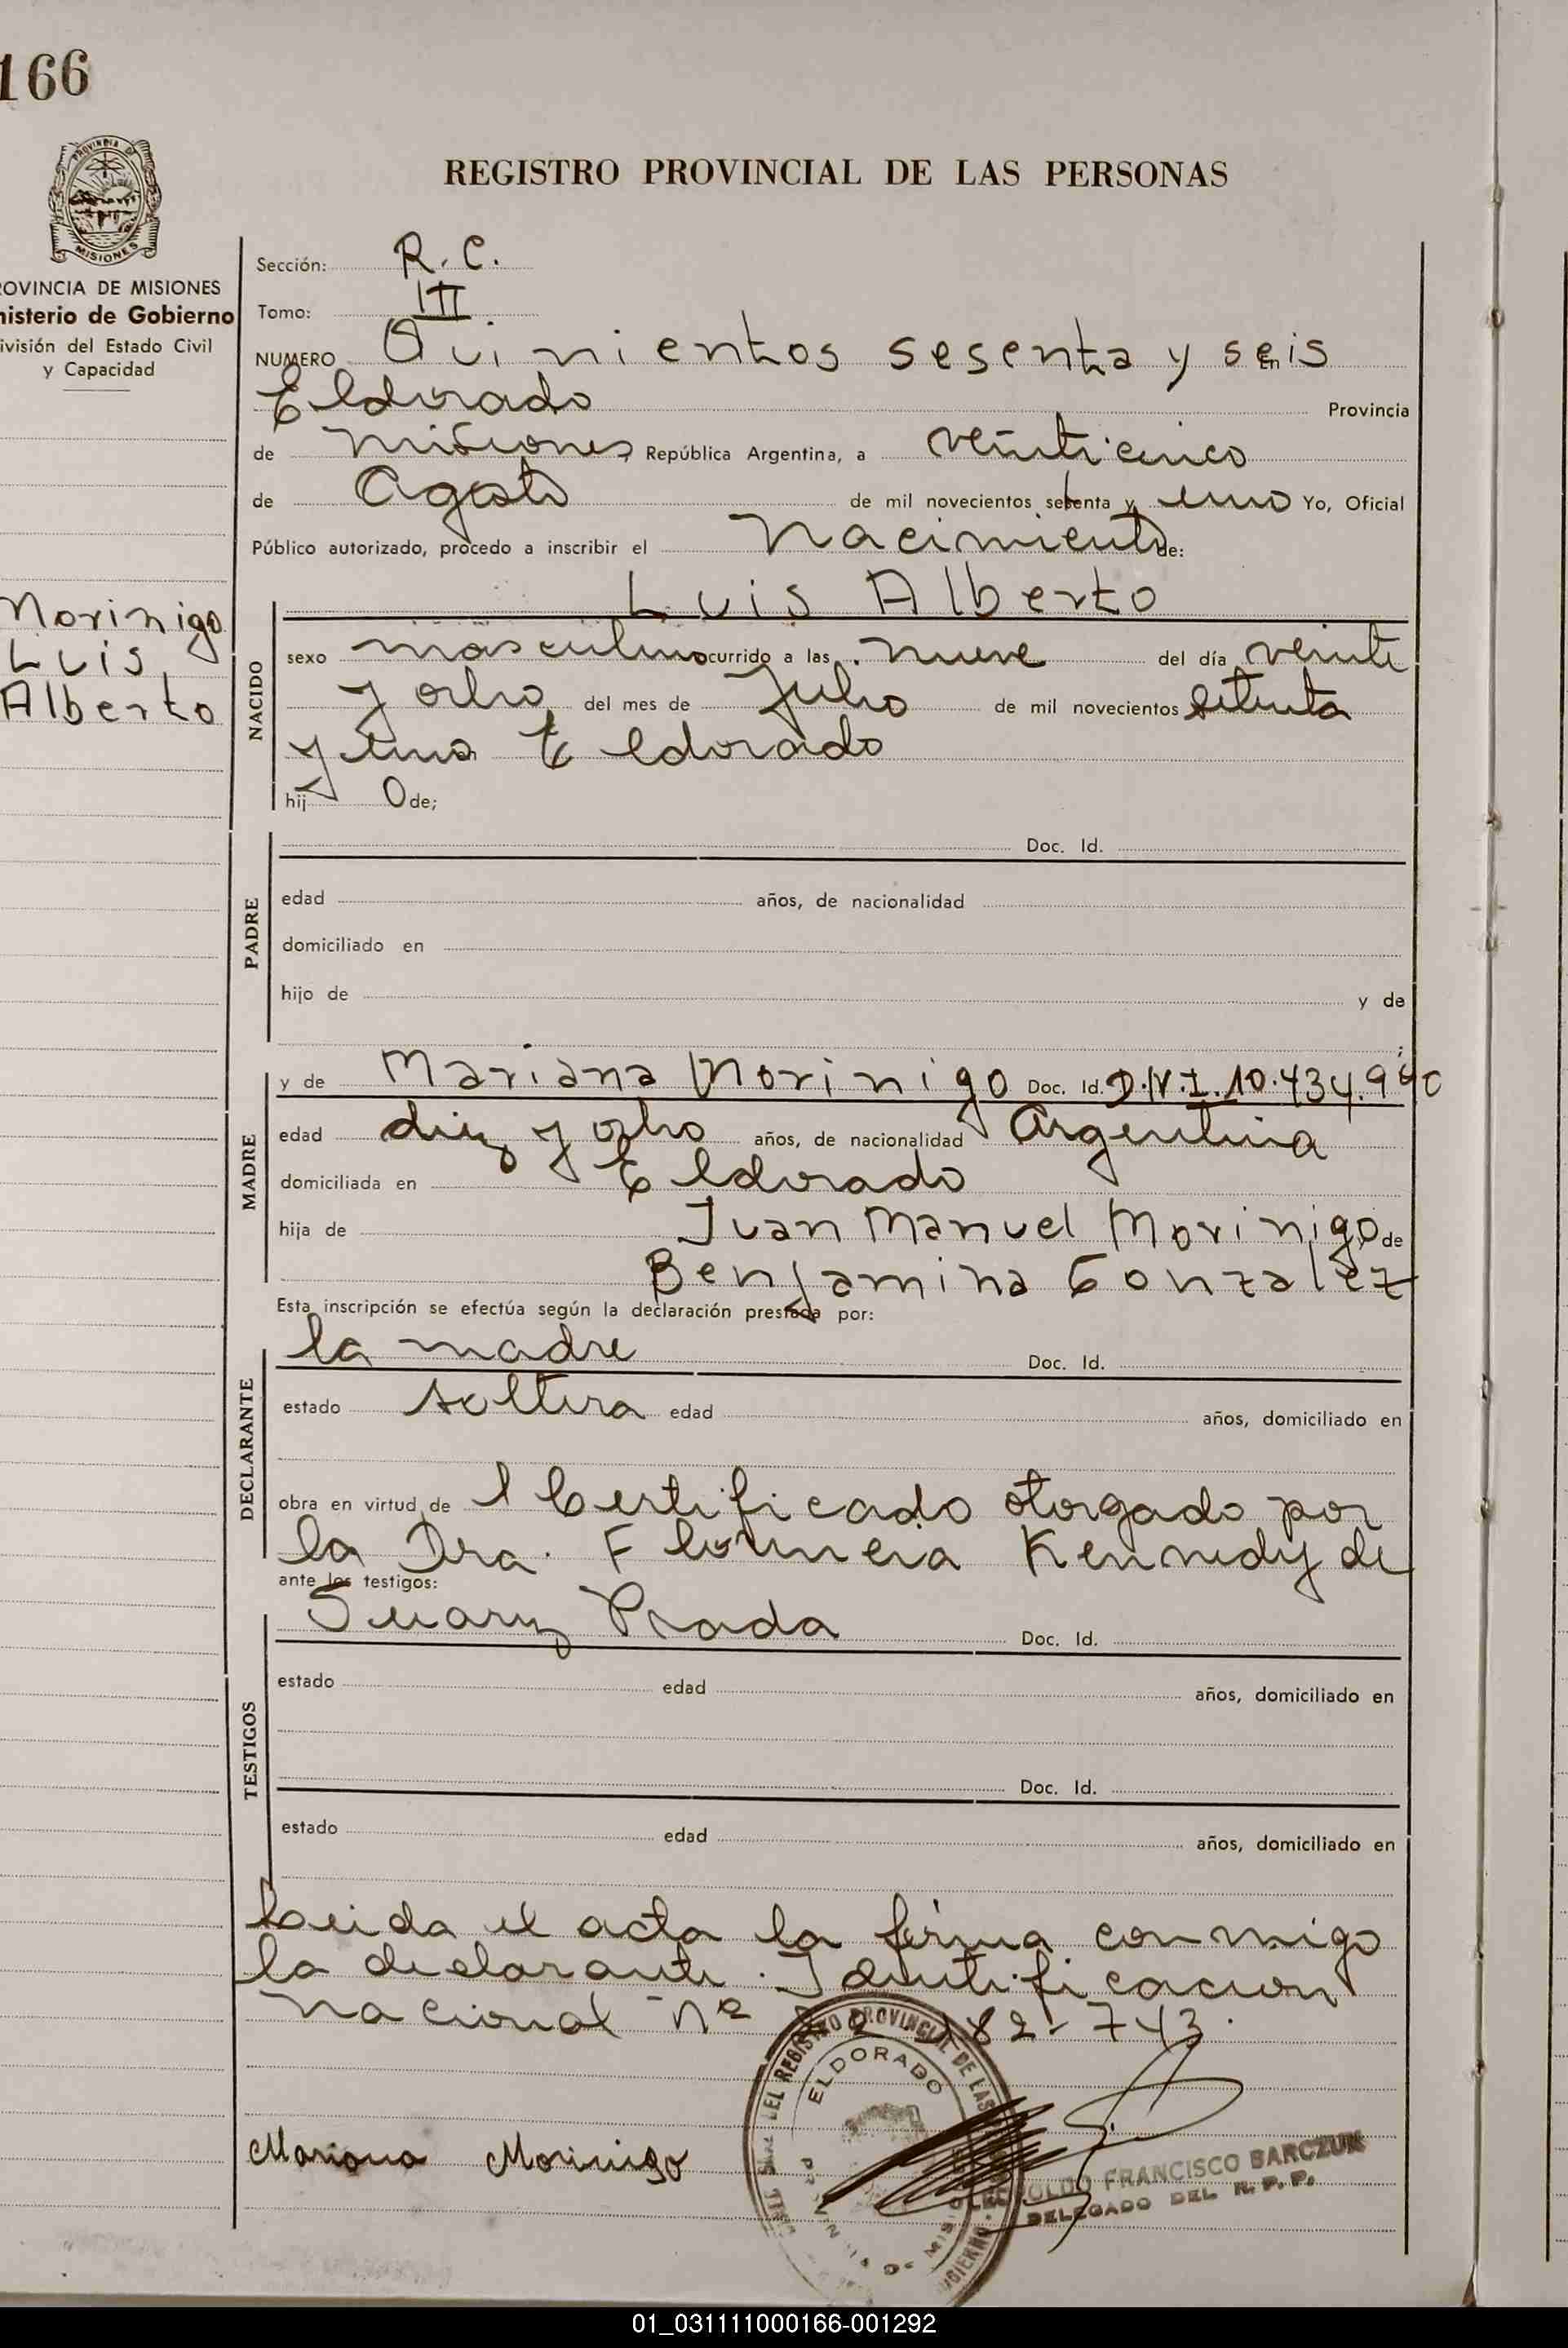 166
REGISTRO PROVINCIAL DE LAS PERSONAS
PROVINCIA DE
MISIONES
ROVINCIA DE MISIONES
nisterio de Gobierno
ivisión del Estado Civil
y Capacidad
Morinigo
Luis
Alberto
Sección: R. C.
Tomo: III
NUMERO Quinientos sesenta y seis En
Eldorado Provincia
de Misiones, República Argentina, a veinticinco
de Agosto de mil novecientos setenta y uno Yo, Oficial
Público autorizado, procedo a inscribir el Nacimiento de:
NACIDO
Luis Alberto
sexo masculino ocurrido a las nueve del día veinti
y ocho del mes de Julio de mil novecientos setenta
y uno Eldorado
hij o de;
PADRE
Doc. Id.
edad años, de nacionalidad
domiciliado en
hijo de y de
MADRE
y de Mariana Morinigo Doc. Id. D.N.I. 10.434.9
edad diez y ocho años, de nacionalidad Argentina
domiciliada en Eldorado
hija de Juan Manuel Morinigo de
Benjamina Gonzalez
Esta inscripción se efectúa según la declaración prestada por:
DECLARANTE
la madre Doc. Id.
estado soltera edad años, domiciliado en
obra en virtud de l Certificado otorgado por
la Dra. Kennedy de
ante los testigos:
TESTIGOS
Suarez Prada Doc. Id.
estado edad años, domiciliado en
Doc. Id.
estado edad años, domiciliado en
Leida el acta la firma conmigo
la declarante. Identificacion
nacional nº 82-743.
REGISTRO PROVINCIAL DE LAS
ELDORADO
Mariana Morinigo
LEOPOLDO FRANCISCO BARCZUK
DELEGADO DEL R. P. P.
01_031111000166-001292